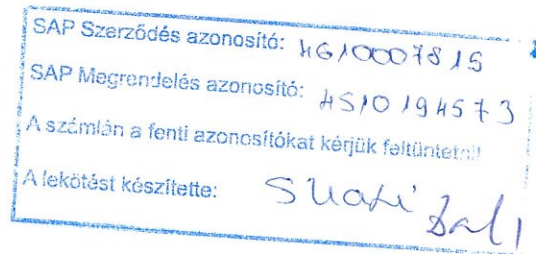 SAP Szerződés azonosító: 4610007815
SAP Megrendelés azonosító: 4510194573
A számlán a fenti azonosítókat kérjük feltüntetni!
A lekötést készítette: